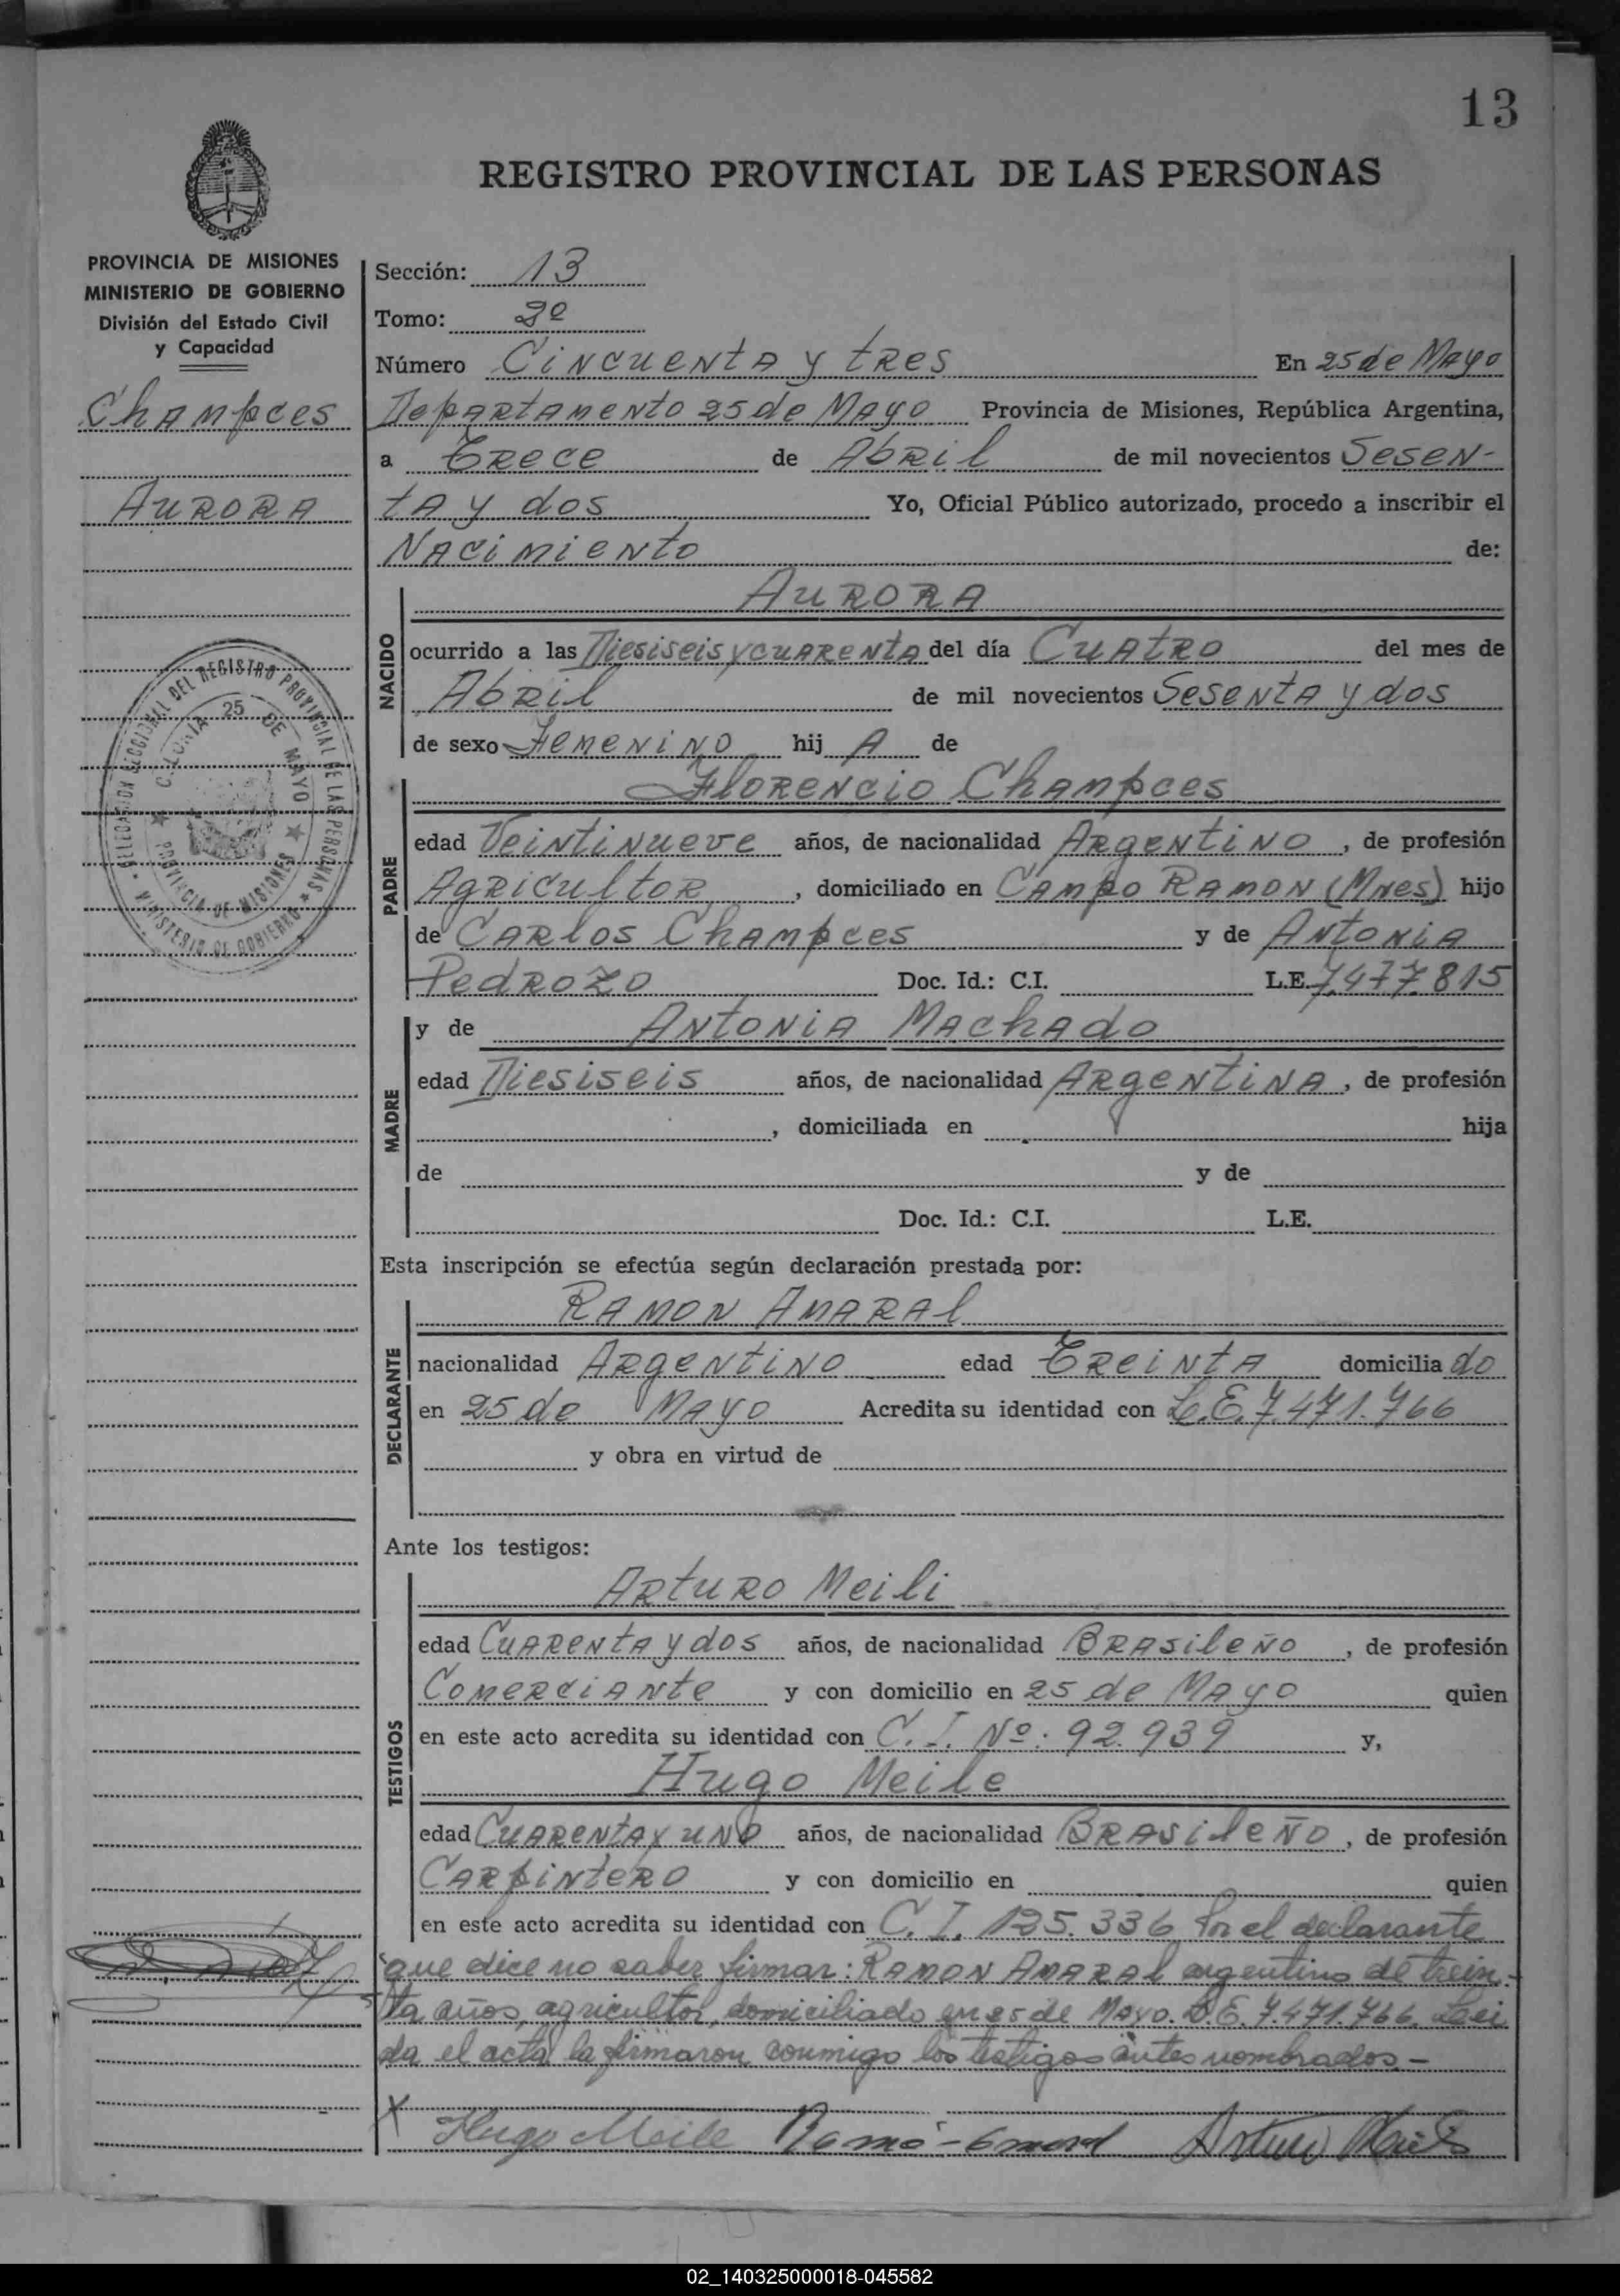 13
REGISTRO PROVINCIAL DE LAS PERSONAS
PROVINCIA DE MISIONES
MINISTERIO DE GOBIERNO
División del Estado Civil
y Capacidad
Champces
Aurora
DELEGACION SECCIONAL DEL REGISTRO PROVINCIAL DE LAS PERSONAS ★ MINISTERIO DE GOBIERNO
COLONIA 25 DE MAYO ★ PROVINCIA DE MISIONES ★
Sección: 13
Tomo: 2º
Número Cincuenta y tres En 25 de Mayo
Departamento 25 de Mayo Provincia de Misiones, República Argentina,
a Trece de Abril de mil novecientos Sesen-
ta y dos Yo, Oficial Público autorizado, procedo a inscribir el
Nacimiento de:
NACIDO
Aurora
ocurrido a las Diesiseis y cuarenta del día Cuatro del mes de
Abril de mil novecientos Sesenta y dos
de sexo Femenino hij A de
PADRE
Florencio Champces
edad Veintinueve años, de nacionalidad Argentino, de profesión
Agricultor, domiciliado en Campo Ramon (Mnes) hijo
de Carlos Champces y de Antonia
Pedrozo Doc. Id.: C.I. L.E. 7.477.815
MADRE
y de Antonia Machado
edad Diesiseis años, de nacionalidad Argentina, de profesión
, domiciliada en hija
de y de
Doc. Id.: C.I. L.E.
Esta inscripción se efectúa según declaración prestada por:
DECLARANTE
Ramon Amaral
nacionalidad Argentino edad Treinta domicilia do
en 25 de Mayo Acredita su identidad con L.E. 7.471.766
y obra en virtud de
Ante los testigos:
TESTIGOS
Arturo Meili
edad Cuarenta y dos años, de nacionalidad Brasileño, de profesión
Comerciante y con domicilio en 25 de Mayo quien
en este acto acredita su identidad con C.I. Nº: 92.939 y,
Hugo Meile
edad Cuarenta y uno años, de nacionalidad Brasileño, de profesión
Carpintero y con domicilio en quien
en este acto acredita su identidad con C.I. 125.336 Por el declarante
que dice no saber firmar: Ramon Amaral argentino de trein-
ta años, agricultor, domiciliado en 25 de Mayo. L.E. 7.471.766. Lei
da el acta la firmaron conmigo los testigos antes nombrados.-
X Hugo Meile Arturo
02_140325000018-045582